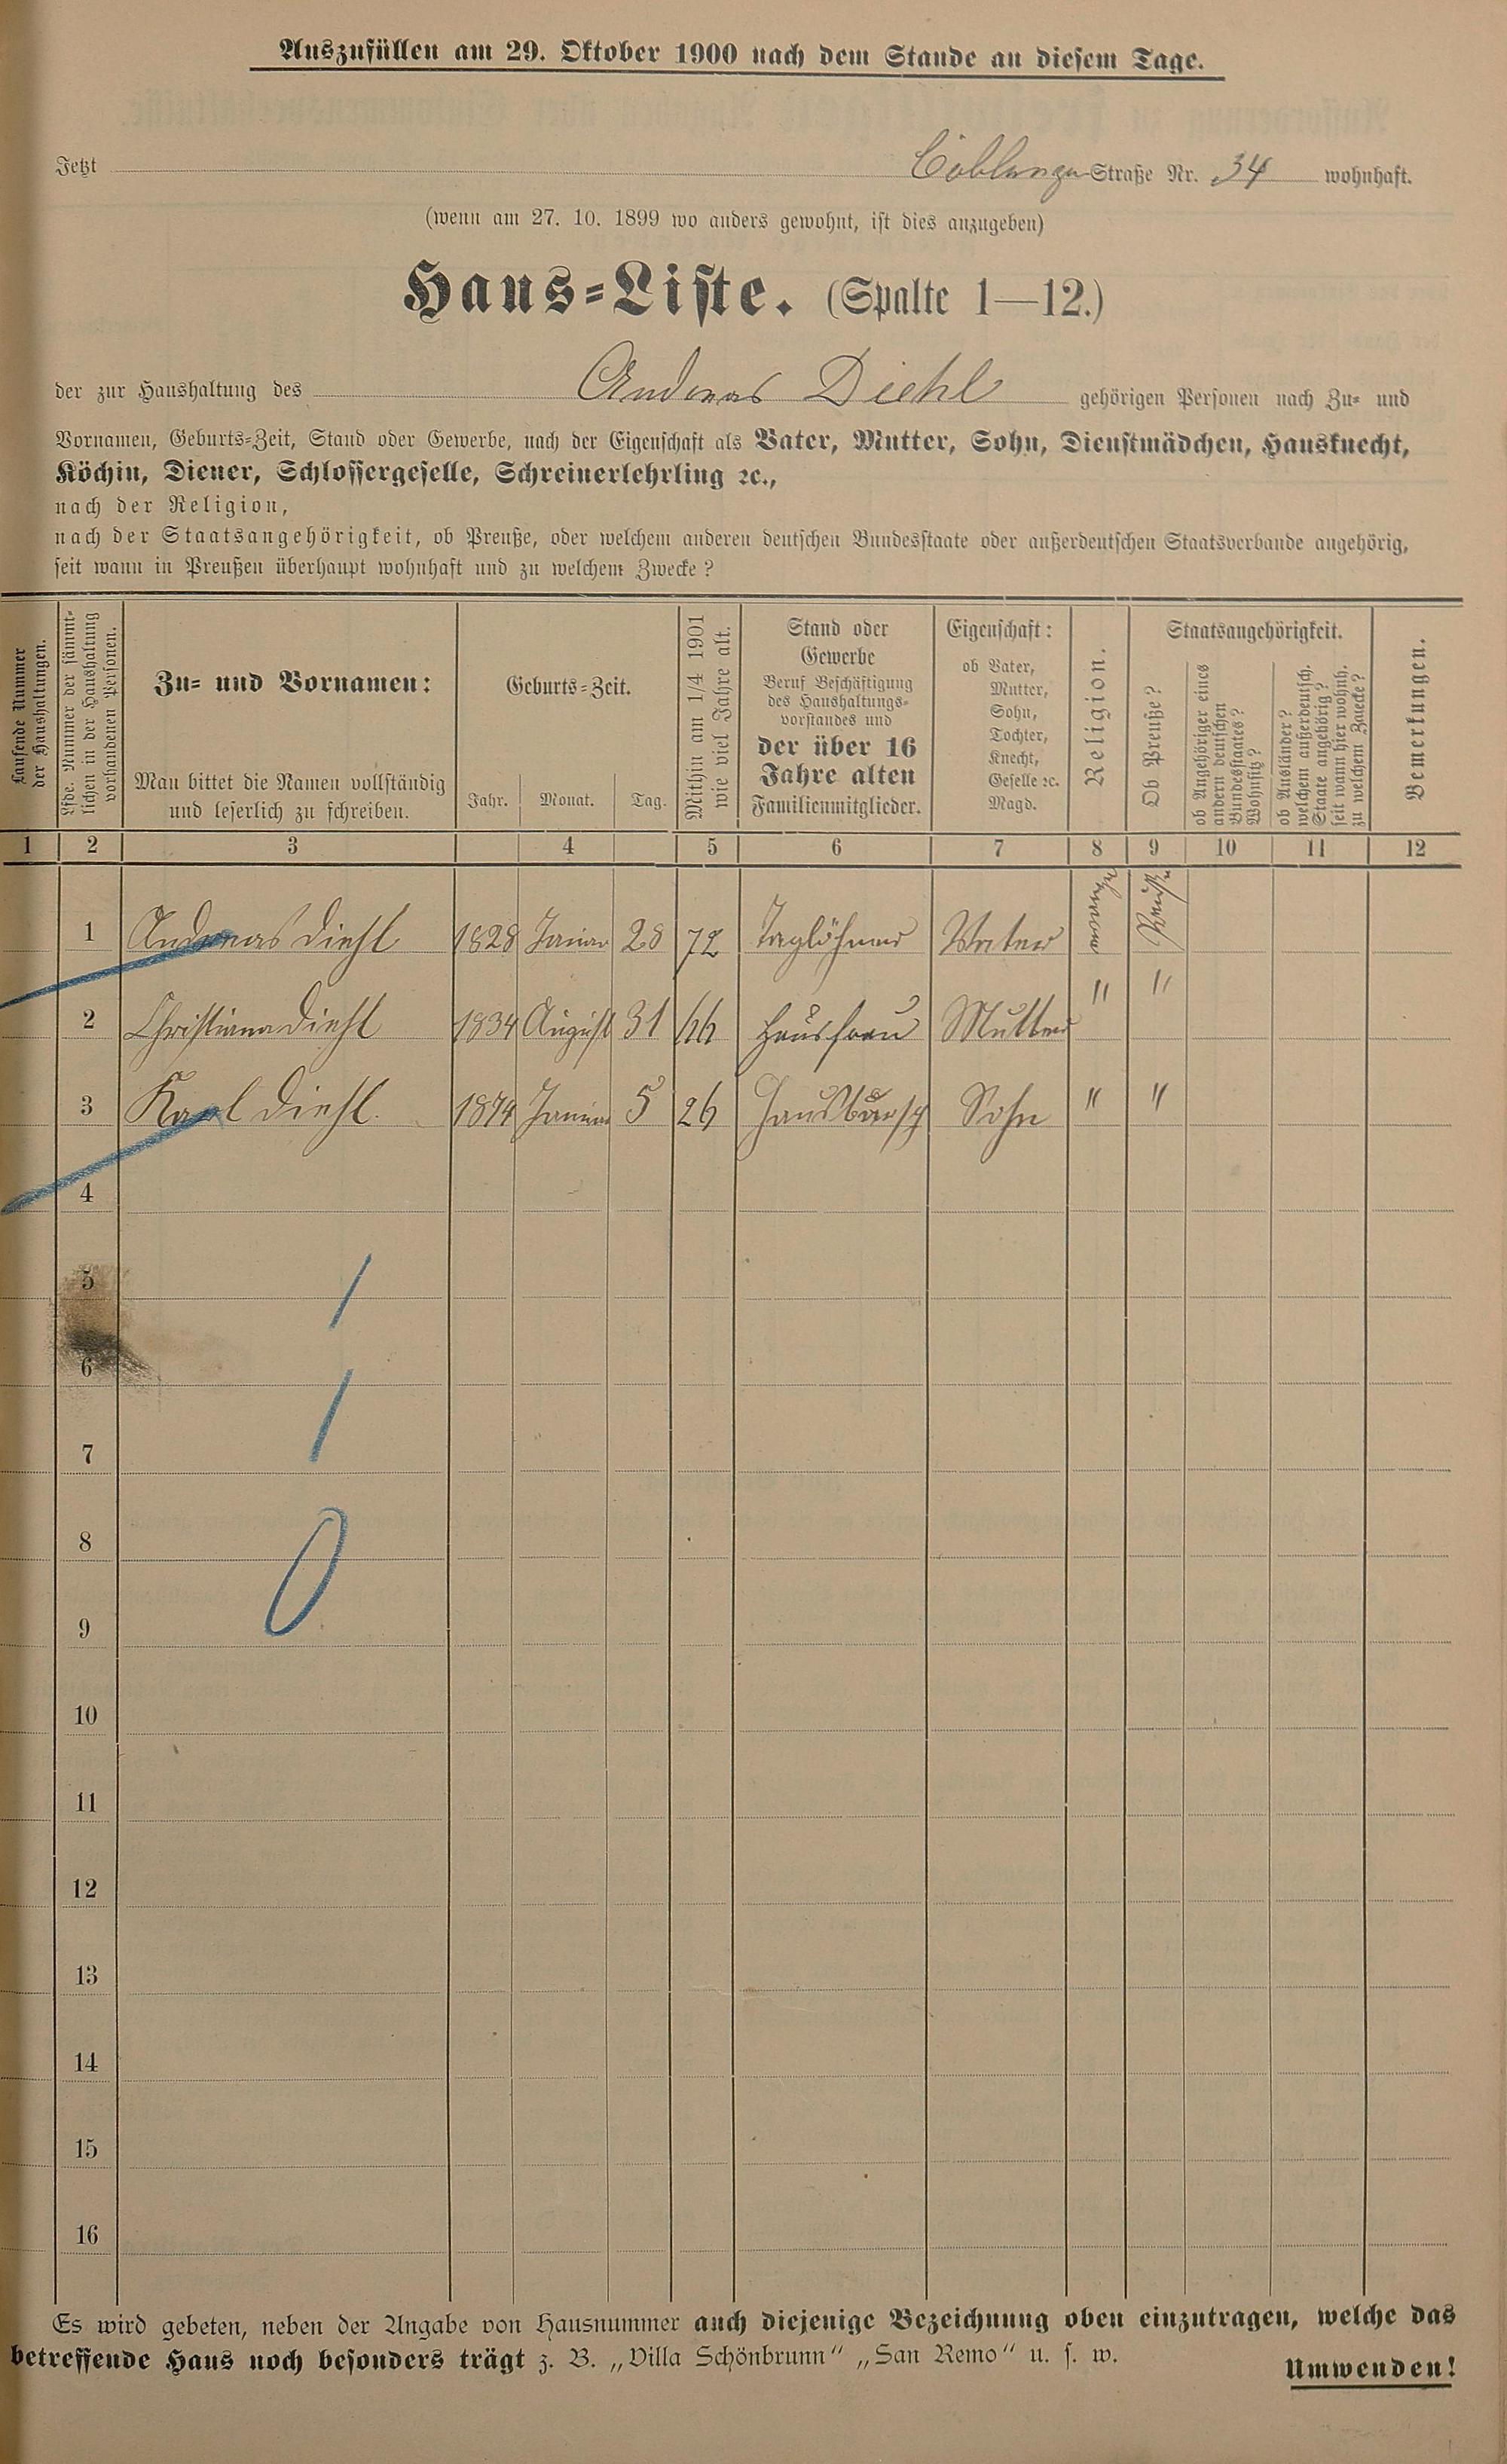 Auszufüllen am 29. Oktober 1900 nach dem Stande an diesem Tage.
Jetzt Coblenzer Straße Nr. 34 wohnhaft.
(wenn am 27. 10. 1899 wo anders gewohnt, ist dies anzugeben)
Haus-Liste. (Spalte 1—12.)
der zur Haushaltung des Andreas Diehl gehörigen Personen nach Zu- und
Vornamen, Geburts-Zeit, Stand oder Gewerbe, nach der Eigenschaft als Vater, Mutter, Sohn, Dienstmädchen, Hausknecht,
Köchin, Diener, Schlossergeselle, Schreinerlehrling ꝛc.,
nach der Religion,
nach der Staatsangehörigkeit, ob Preuße, oder welchem anderen deutschen Bundesstaate oder außerdeutschen Staatsverbande angehörig,
seit wann in Preußen überhaupt wohnhaft und zu welchem Zwecke?
Laufende Nummer
der Haushaltungen.
Lfde. Nummer der sämmt-
lichen in der Haushaltung
vorhandenen Personen.
Zu- und Vornamen:
Man bittet die Namen vollständig
und leserlich zu schreiben.
Geburts-Zeit.
Jahr. Monat. Tag.
Mithin am 1/4 1901
wie viel Jahre alt.
Stand oder
Gewerbe
Beruf Beschäftigung
des Haushaltungs-
vorstandes und
der über 16
Jahre alten
Familienmitglieder.
Eigenschaft:
ob Vater,
Mutter,
Sohn,
Tochter,
Knecht,
Geselle ꝛc.
Magd.
Religion.
Staatsangehörigkeit.
Ob Preuße?
ob Angehöriger eines
andern deutschen
Bundesstaates?
Wohnsitz?
ob Ausländer?
welchem außerdeutsch.
Staate angehörig?
seit wann hier wohnh.
zu welchem Zwecke?
Bemerkungen.
1 2 3 4 5 6 7 8 9 10 11 12
1 Andreas Diehl 1828 Januar 28 72 Taglöhner Vater Preuße
2 Christiana Diehl 1834 August 31 66 Hausfrau Mutter " "
3 Karl Diehl. 1874 Januar 5 26 Hausbursch Sohn " "
4
5
6
7
8
9
10
11
12
13
14
15
16
Es wird gebeten, neben der Angabe von Hausnummer auch diejenige Bezeichnung oben einzutragen, welche das
betreffende Haus noch besonders trägt z. B. „Villa Schönbrunn“ „San Remo“ u. s. w.
Umwenden!